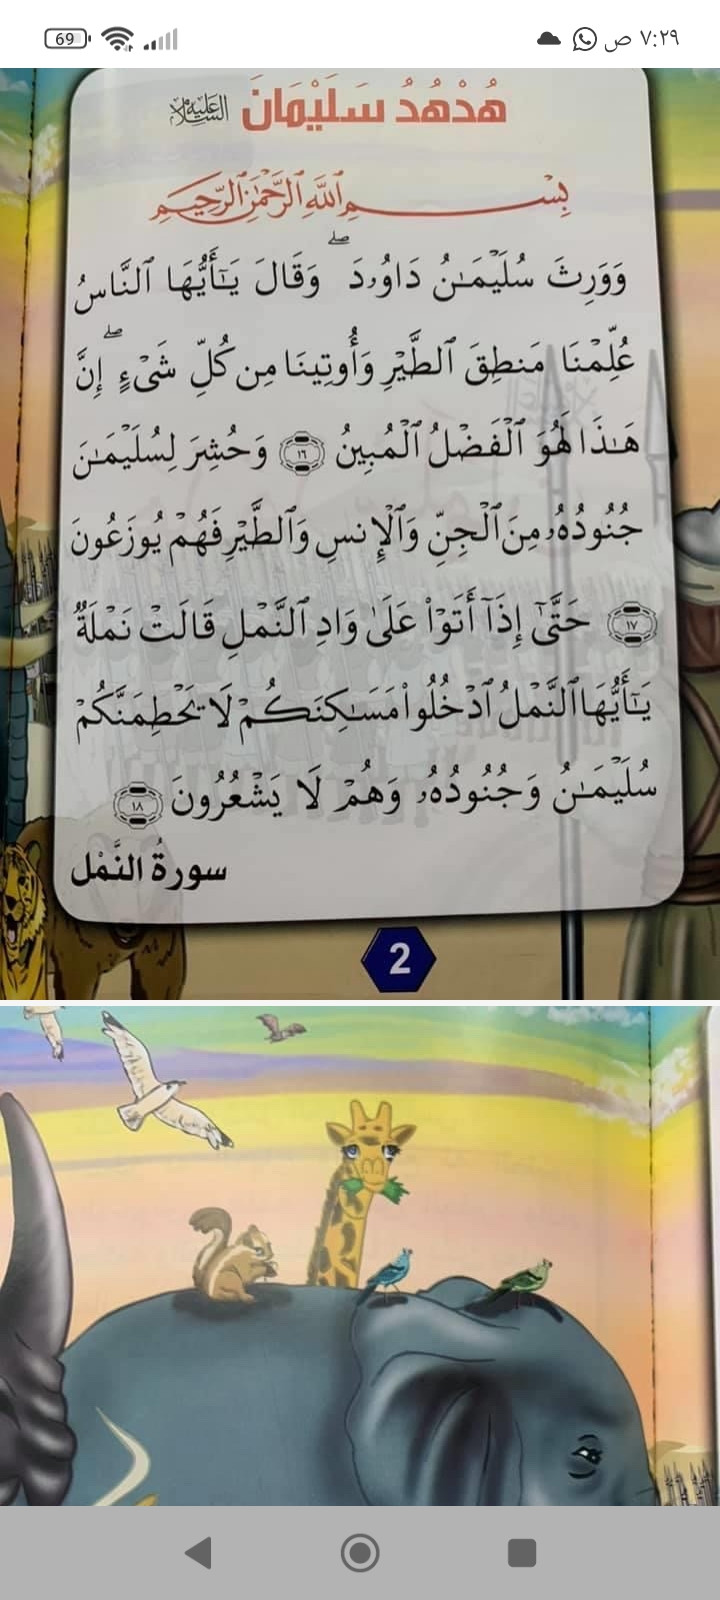 69
٧:٢٩ ص
هُدْهُدُ سَلَيْمَانَ عليه السلام
بِسْمِ ٱللَّهِ ٱلرَّحْمَٰنِ ٱلرَّحِيمِ
وَوَرِثَ سُلَيْمَـٰنُ دَاوُۥدَ ۖ وَقَالَ يَـٰٓأَيُّهَا ٱلنَّاسُ
عُلِّمْنَا مَنطِقَ ٱلطَّيْرِ وَأُوتِينَا مِن كُلِّ شَىْءٍ ۖ إِنَّ
هَـٰذَا لَهُوَ ٱلْفَضْلُ ٱلْمُبِينُ ١٦ وَحُشِرَ لِسُلَيْمَـٰنَ
جُنُودُهُۥ مِنَ ٱلْجِنِّ وَٱلْإِنسِ وَٱلطَّيْرِ فَهُمْ يُوزَعُونَ
١٧ حَتَّىٰٓ إِذَآ أَتَوْا۟ عَلَىٰ وَادِ ٱلنَّمْلِ قَالَتْ نَمْلَةٌ
يَـٰٓأَيُّهَا ٱلنَّمْلُ ٱدْخُلُوا۟ مَسَـٰكِنَكُمْ لَا يَحْطِمَنَّكُمْ
سُلَيْمَـٰنُ وَجُنُودُهُۥ وَهُمْ لَا يَشْعُرُونَ ١٨
سورةُ النَّمْل
2